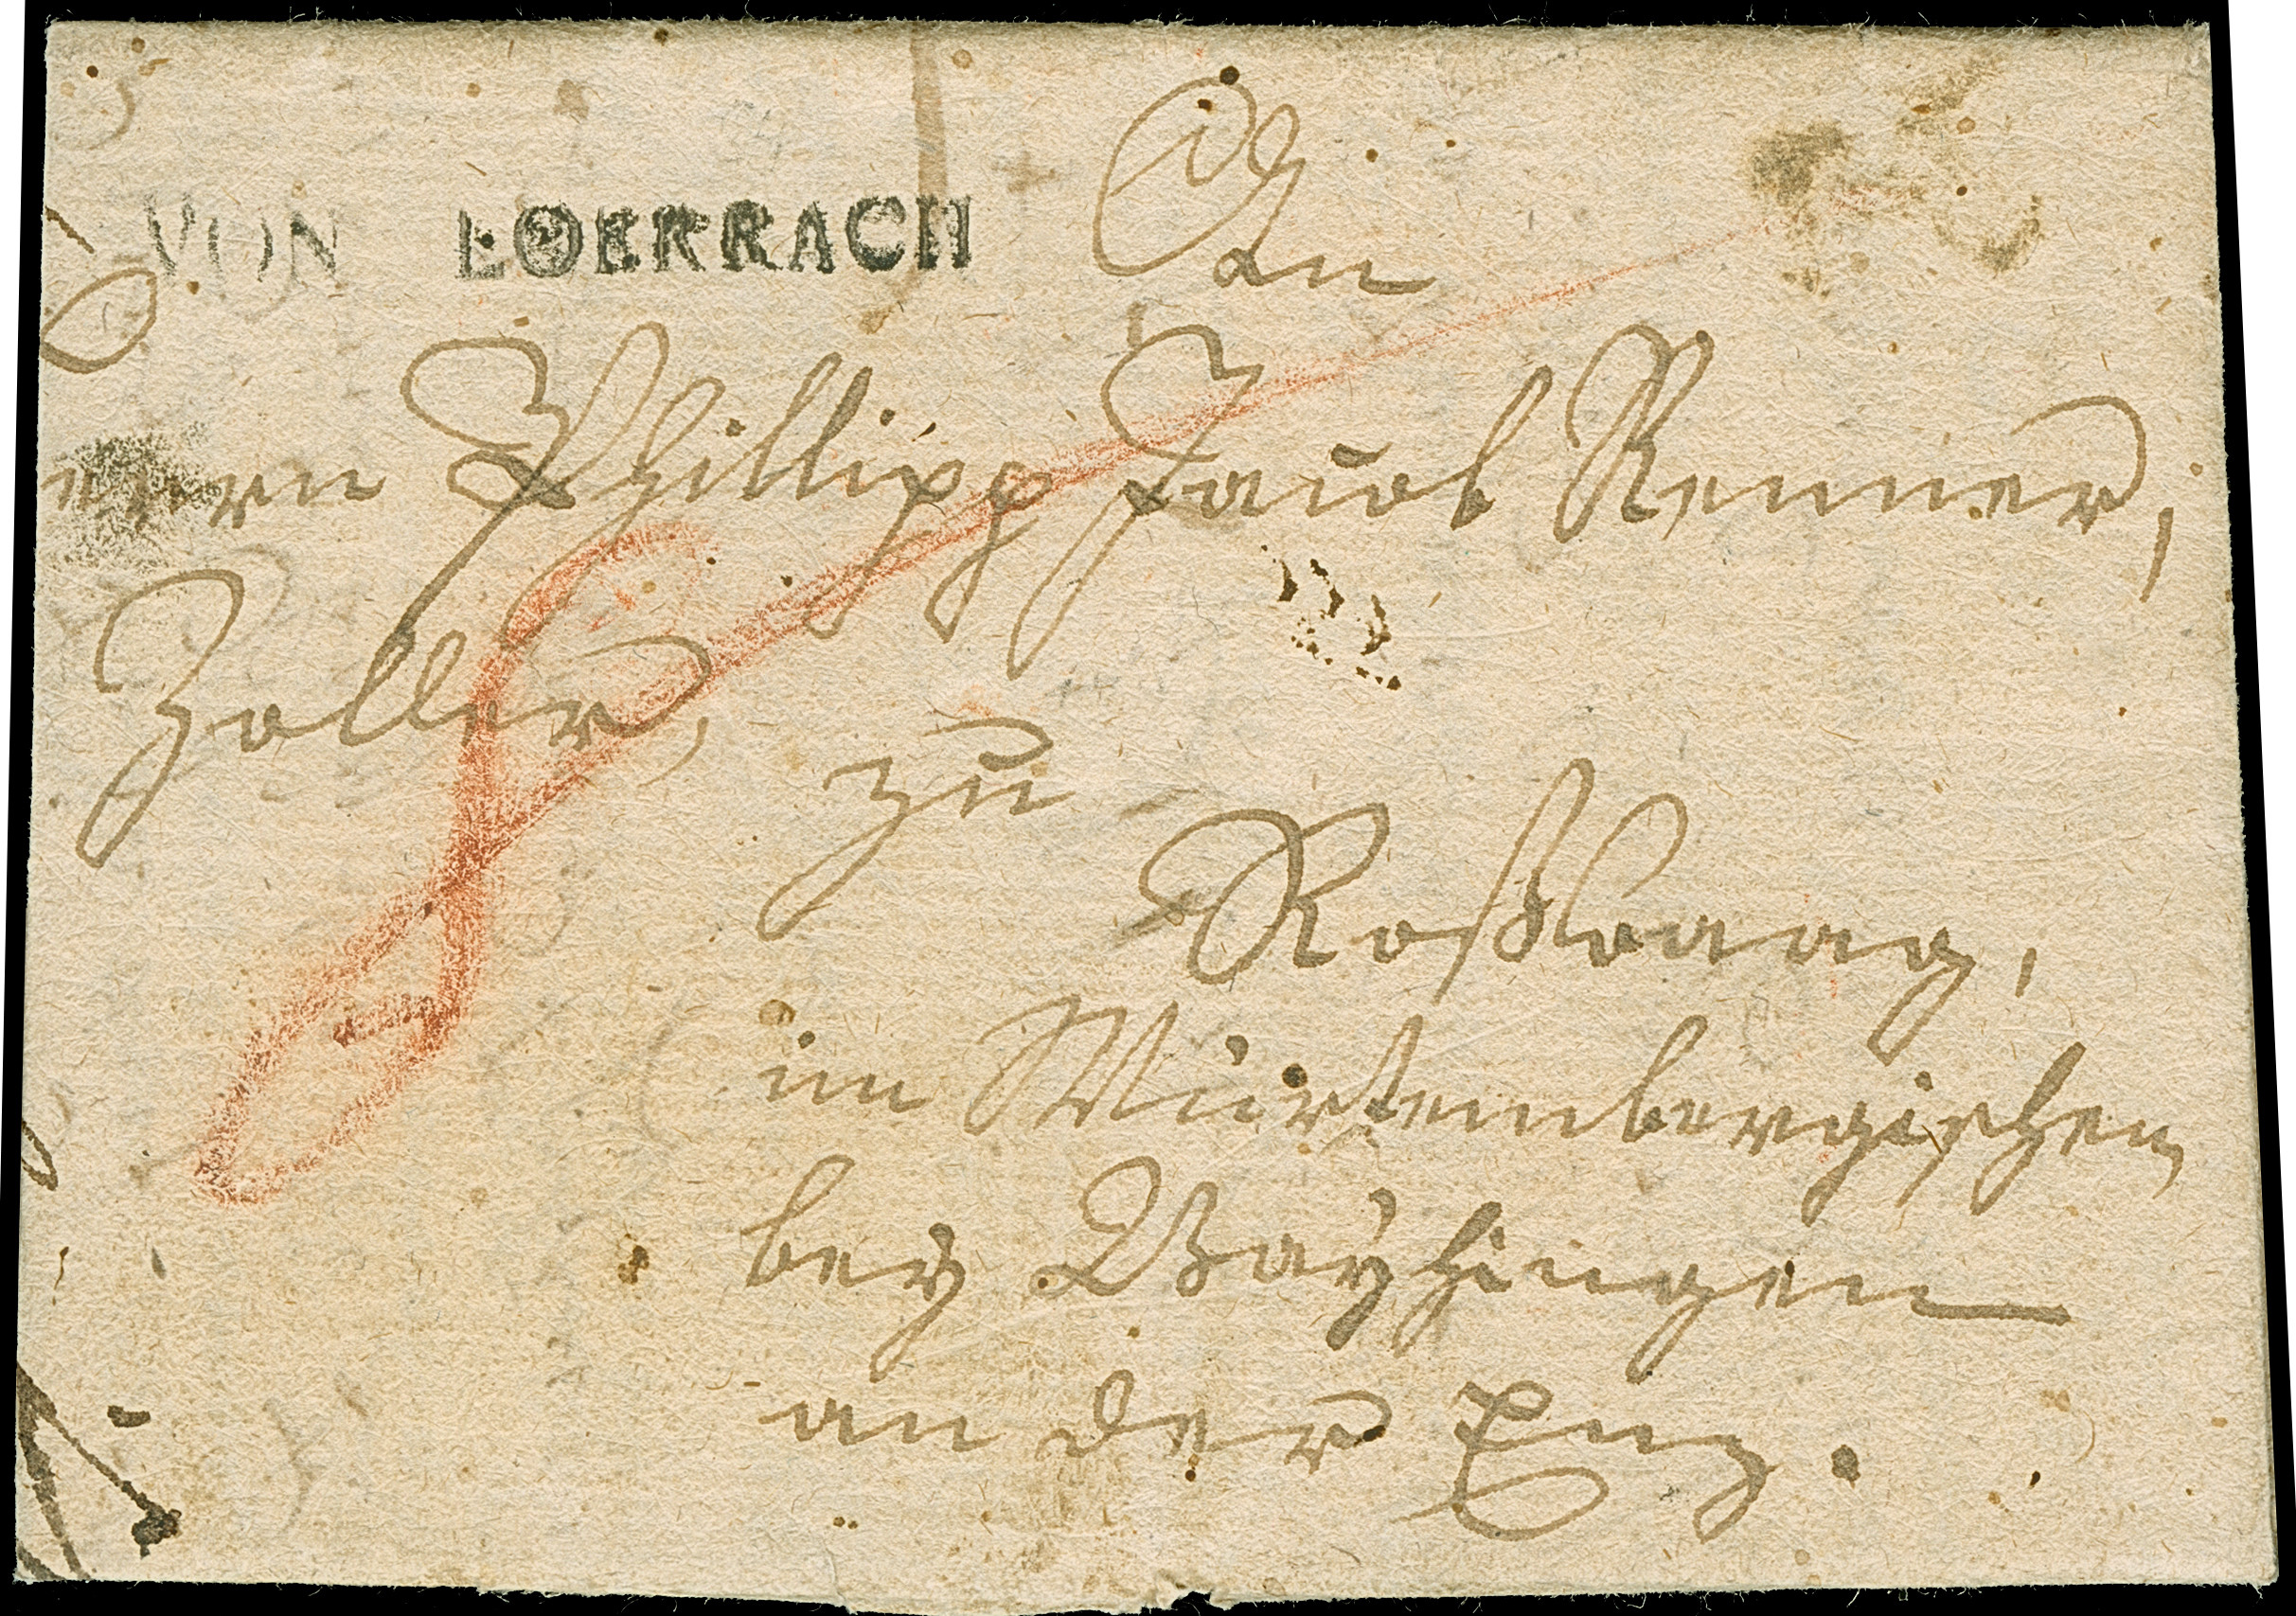 VON LOERRACH
An
Herrn Phillipp Jacob Renner,
Zoller,
zu
Roßwaag,
im Würtembergischen
bey Vayhingen
an der Enz.